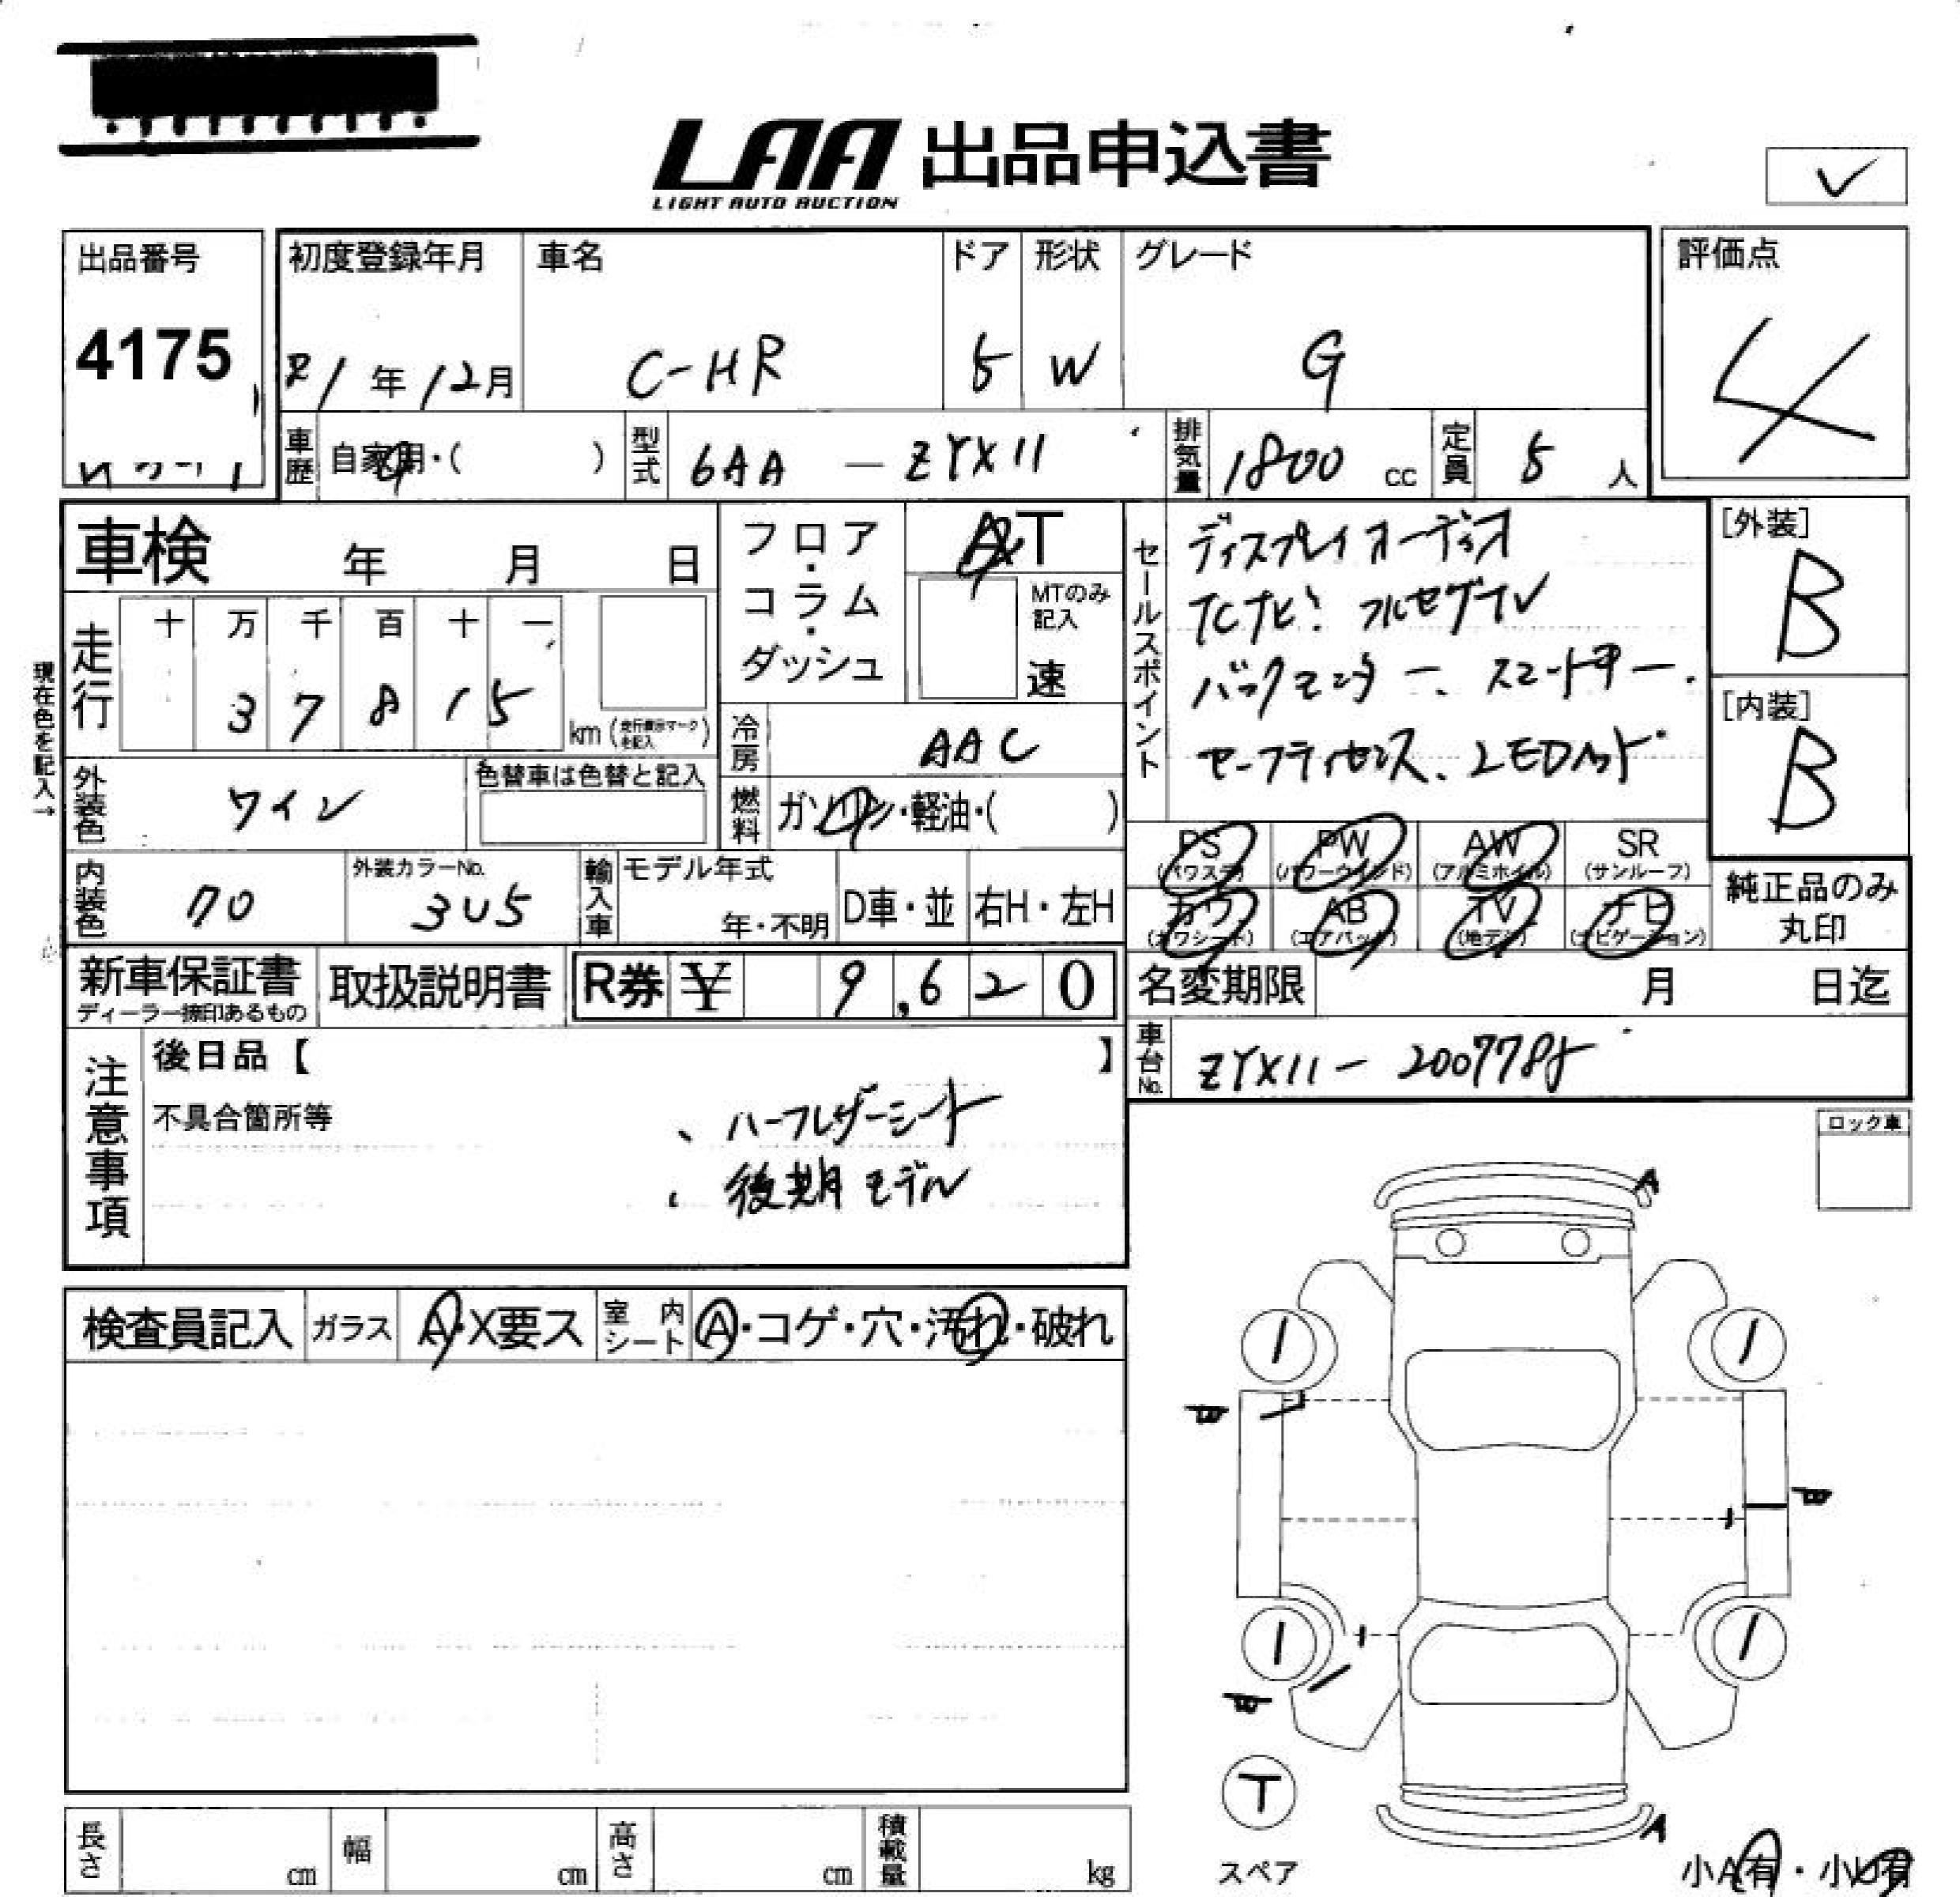 LAA 出品申込書
LIGHT AUTO AUCTION
出品番号
4175
初度登録年月
R1年12月
車名
C-HR
ドア
5
形状
W
グレード
G
評価点
4
車歴 自家用・( )
型式 6AA-ZYX11
排気量 1800 cc
定員 5 人
車検 年 月 日
フロア・コラム・ダッシュ
AT
MTのみ記入
速
セールスポイント
ディスプレイオーディオ
TCナビ! フルセグTV
バックモニター、スマートキー、
セーフティセンス、LEDヘッド
[外装]
B
[内装]
B
現在色を記入→
走行 十 万 千 百 十 一
3 7 8 1 5
km (走行表示マークを記入)
冷房 AAC
外装色 ワイン
色替車は色替と記入
燃料 ガソリン・軽油・( )
PS (パワステ)
PW (パワーウインド)
AW (アルミホイル)
SR (サンルーフ)
カワ (カワシート)
AB (エアバック)
TV (地デジ)
ナビ (ナビゲーション)
純正品のみ丸印
内装色 クロ
外装カラーNo. 3U5
輸入車 モデル年式 年・不明
D車・並 右H・左H
新車保証書
ディーラー捺印あるもの
取扱説明書
R券 ¥ 9,620
名変期限 月 日迄
車台No. ZYX11-2007785
注意事項
後日品【 】
不具合箇所等
、ハーフレザーシート
、後期モデル
ロック車
検査員記入 ガラス A・X要ス 室内シート A・コゲ・穴・汚れ・破れ
A
T
スペア
A
小A有・小U有
長さ cm 幅 cm 高さ cm 積載量 kg